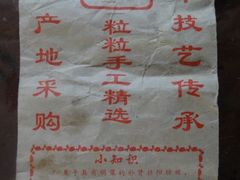 产地采购
粒粒手工精选
技艺传承
小知识